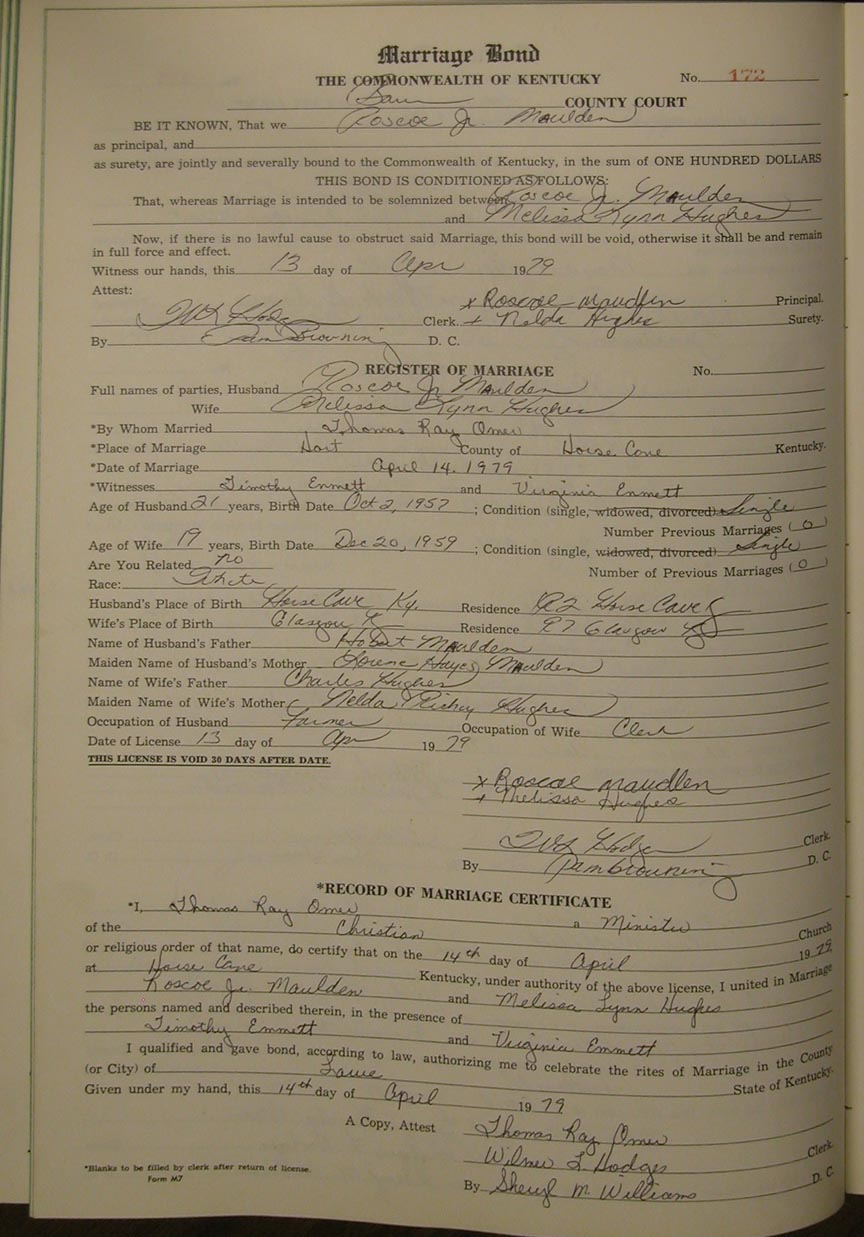 Marriage Bond
THE COMMONWEALTH OF KENTUCKY No. 172
COUNTY COURT
BE IT KNOWN, That we Roscoe Jr. Maulden
as principal, and
as surety, are jointly and severally bound to the Commonwealth of Kentucky, in the sum of ONE HUNDRED DOLLARS
THIS BOND IS CONDITIONED AS FOLLOWS:
That, whereas Marriage is intended to be solemnized between Roscoe Jr. Maulden
and Melissa Lynn Hughes
Now, if there is no lawful cause to obstruct said Marriage, this bond will be void, otherwise it shall be and remain
in full force and effect.
Witness our hands, this 13 day of Apr 1979
Attest:
x Roscoe maudlen Principal.
Clerk. x Nelda Hughes Surety.
By Pam Browning D. C.
REGISTER OF MARRIAGE No.
Full names of parties, Husband Roscoe Jr. Maulden
Wife Melissa Lynn Hughes
*By Whom Married Thomas Ray Omer
*Place of Marriage Hart County of Horse Cave Kentucky.
*Date of Marriage April 14, 1979
*Witnesses Timothy Emmett and Virginia Emmett
Age of Husband 21 years, Birth Date Oct 2, 1957; Condition (single, widowed, divorced) Single
Number Previous Marriages (0)
Age of Wife 19 years, Birth Date Dec 20, 1959; Condition (single, widowed, divorced) Single
Are You Related no Number of Previous Marriages (0)
Race: White
Husband's Place of Birth Horse Cave Ky. Residence R2 Horse Cave Ky
Wife's Place of Birth Glasgow K Residence R7 Glasgow Ky
Name of Husband's Father Hobert Maulden
Maiden Name of Husband's Mother Lorene Hayes Maulden
Name of Wife's Father Charles Hughes
Maiden Name of Wife's Mother Nelda Richey Hughes
Occupation of Husband Farmer Occupation of Wife Clerk
Date of License 13 day of Apr 1979
THIS LICENSE IS VOID 30 DAYS AFTER DATE.
x Roscoe maudlen
x Melissa Hughes
Clerk.
By Pam Browning D. C.
*RECORD OF MARRIAGE CERTIFICATE
*I, Thomas Ray Omer a Minister
of the Christian Church
or religious order of that name, do certify that on the 14th day of April 1979
at Horse Cave Kentucky, under authority of the above license, I united in Marriage
Roscoe Jr. Maulden and Melissa Lynn Hughes
the persons named and described therein, in the presence of
Timothy Emmett and Virginia Emmett
I qualified and gave bond, according to law, authorizing me to celebrate the rites of Marriage in the County
(or City) of Larue State of Kentucky.
Given under my hand, this 14th day of April 1979
A Copy, Attest Thomas Ray Omer
Wilmer L. Hodges Clerk.
*Blanks to be filled by clerk after return of license.
Form M7
By Sheryl M. Williams D. C.